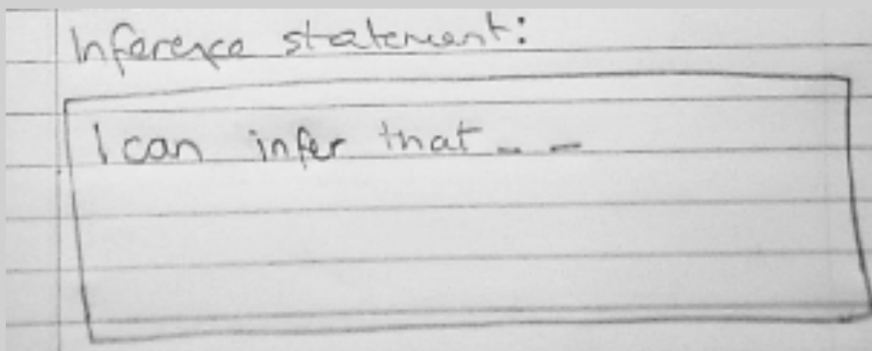 Inference statement:
I can infer that - -